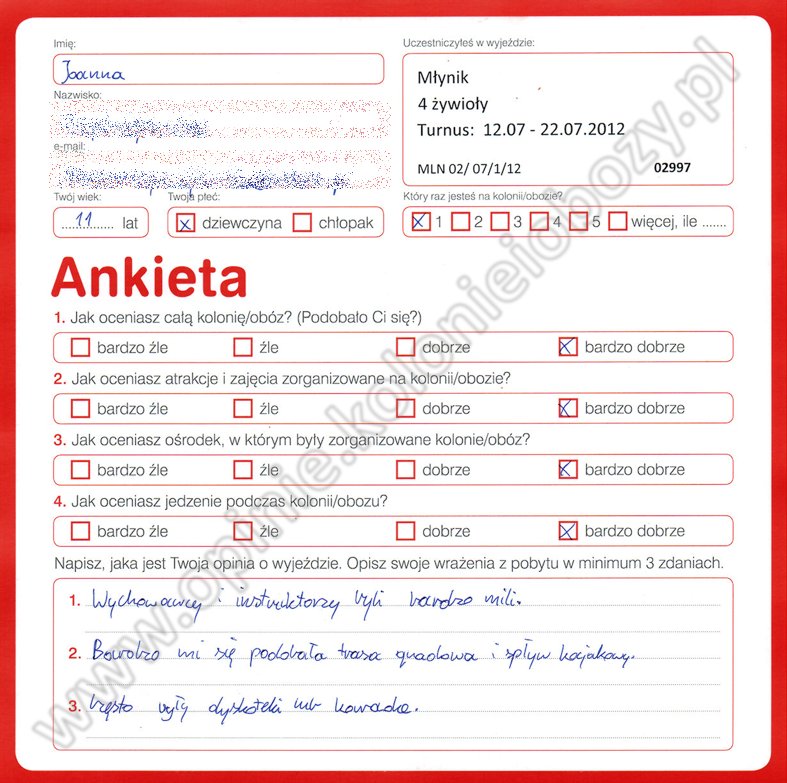 Imię:
Joanna
Nazwisko:
e-mail:
Twój wiek:
11 lat
Twoja płeć:
dziewczyna chłopak
Uczestniczyłeś w wyjeździe:
Młynik
4 żywioły
Turnus: 12.07 - 22.07.2012
MLN 02/ 07/1/12 02997
Który raz jesteś na kolonii/obozie?
1 2 3 4 5 więcej, ile .......
Ankieta
1. Jak oceniasz całą kolonię/obóz? (Podobało Ci się?)
bardzo źle źle dobrze bardzo dobrze
2. Jak oceniasz atrakcje i zajęcia zorganizowane na kolonii/obozie?
bardzo źle źle dobrze bardzo dobrze
3. Jak oceniasz ośrodek, w którym były zorganizowane kolonie/obóz?
bardzo źle źle dobrze bardzo dobrze
4. Jak oceniasz jedzenie podczas kolonii/obozu?
bardzo źle źle dobrze bardzo dobrze
Napisz, jaka jest Twoja opinia o wyjeździe. Opisz swoje wrażenia z pobytu w minimum 3 zdaniach.
1. Wychowawcy i instruktorzy byli bardzo mili.
2. Bardzo mi się podobała trasa quadowa i spływ kajakowy.
3. Często były dyskoteki lub
www.opinie.kolonieiobozy.pl